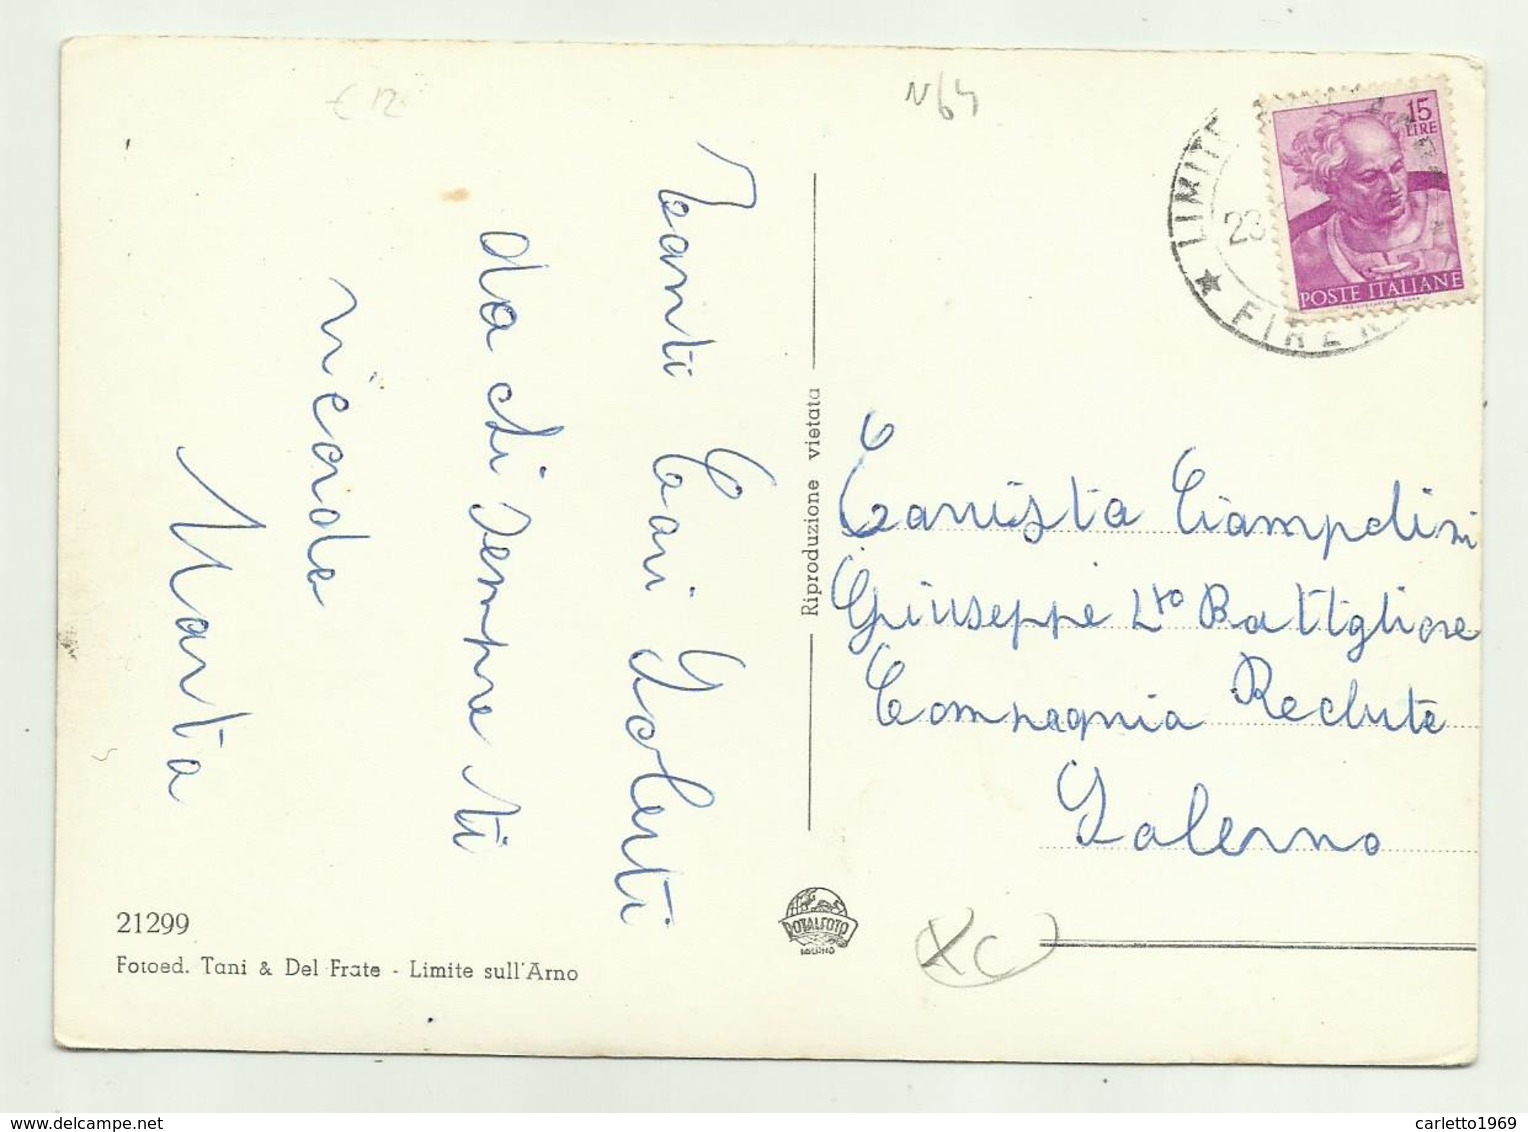 € 12
N64
15
LIRE
POSTE ITALIANE
LIMITE
23
★ FIREN
Tanti Cari Saluti
da chi sempre ti
ricorda
Marta
Riproduzione vietata
Carrista Ciampolini
Giuseppe Lto Battglione
Compagnia Reclute
Salerno
21299
Fotoed. Tani & Del Frate - Limite sull'Arno
ROTALFOTO
MILANO
carletto1969